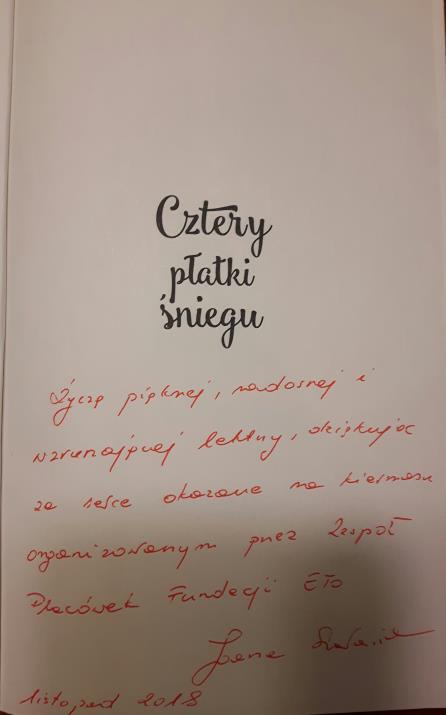 Cztery
płatki
śniegu
Życzę pięknej, radosnej i
wzruszającej lektury, dziękując
za serce okazane na kiermaszu
organizowanym przez Zespół
Placówek Fundacji ETO
Joanna
listopad 2018